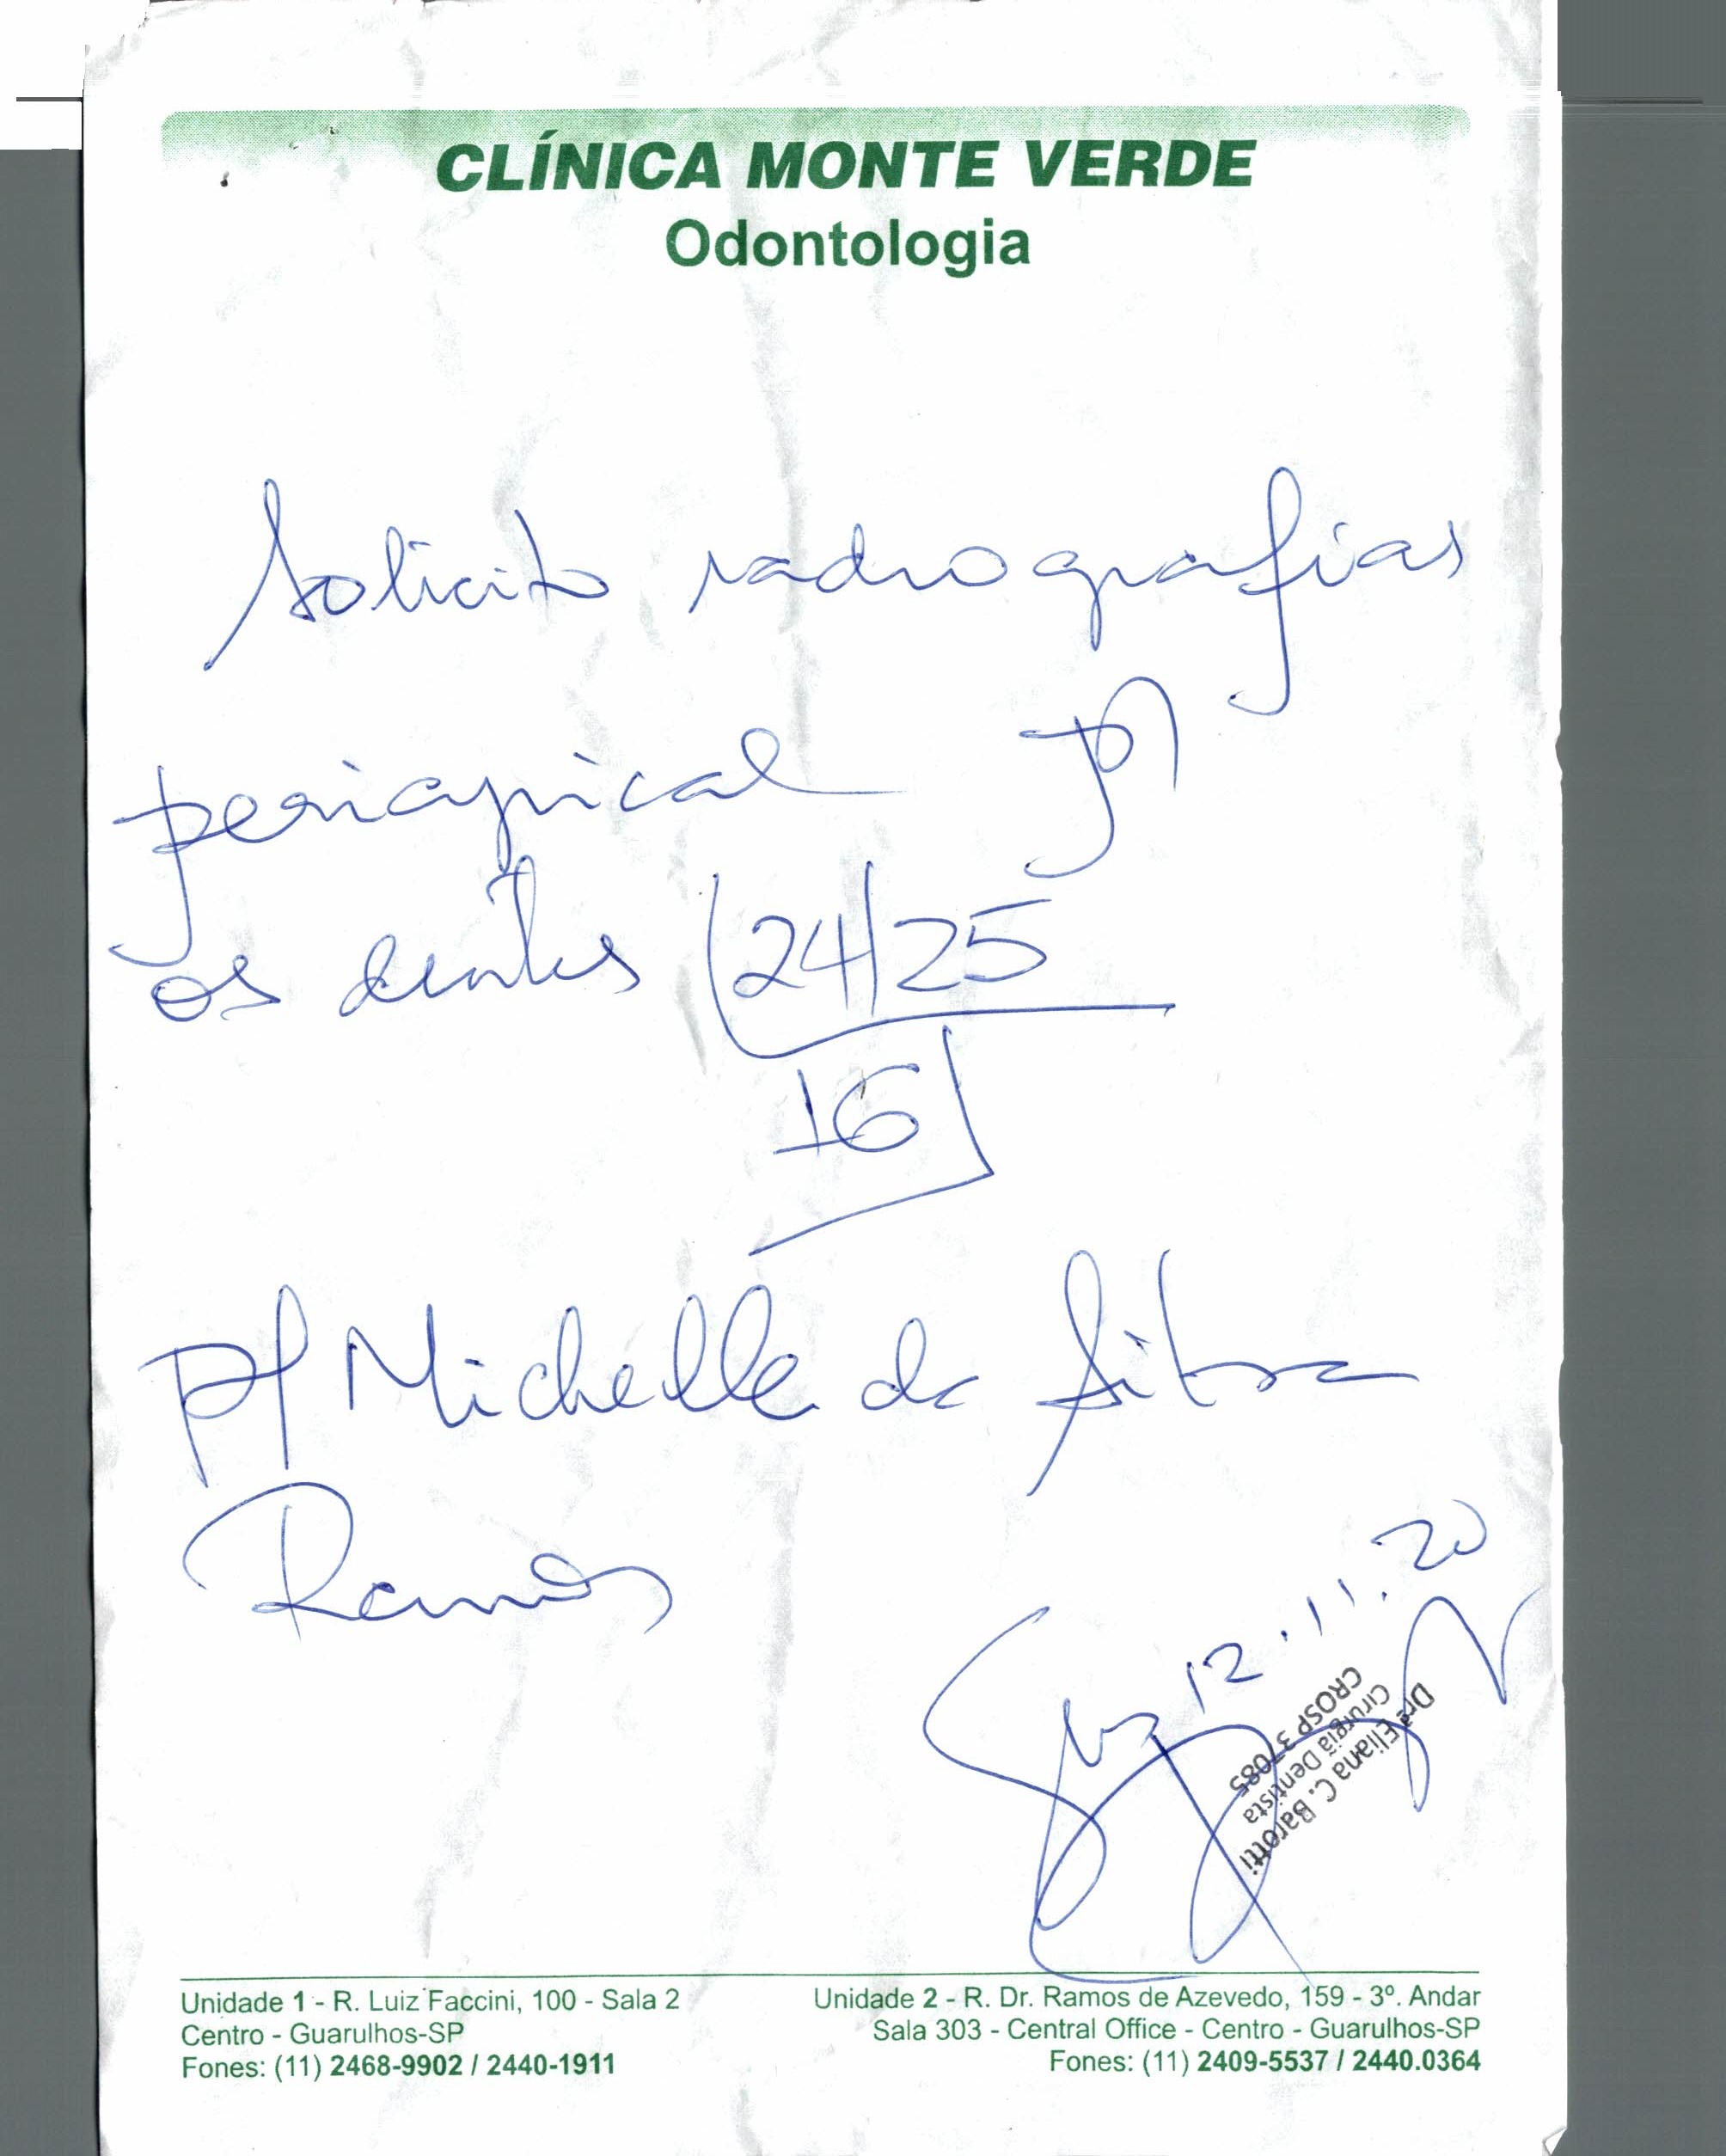 CLÍNICA MONTE VERDE
Odontologia
Solicito radiografias
periapical p/
os dentes 24/25
16
p/ Michelle da Silva
Ramos
Gua 12.11.20
Drª Eliana C. Barotti
Cirurgiã Dentista
CROSP 37085
Unidade 1 - R. Luiz Faccini, 100 - Sala 2
Centro - Guarulhos-SP
Fones: (11) 2468-9902 / 2440-1911
Unidade 2 - R. Dr. Ramos de Azevedo, 159 - 3º. Andar
Sala 303 - Central Office - Centro - Guarulhos-SP
Fones: (11) 2409-5537 / 2440.0364